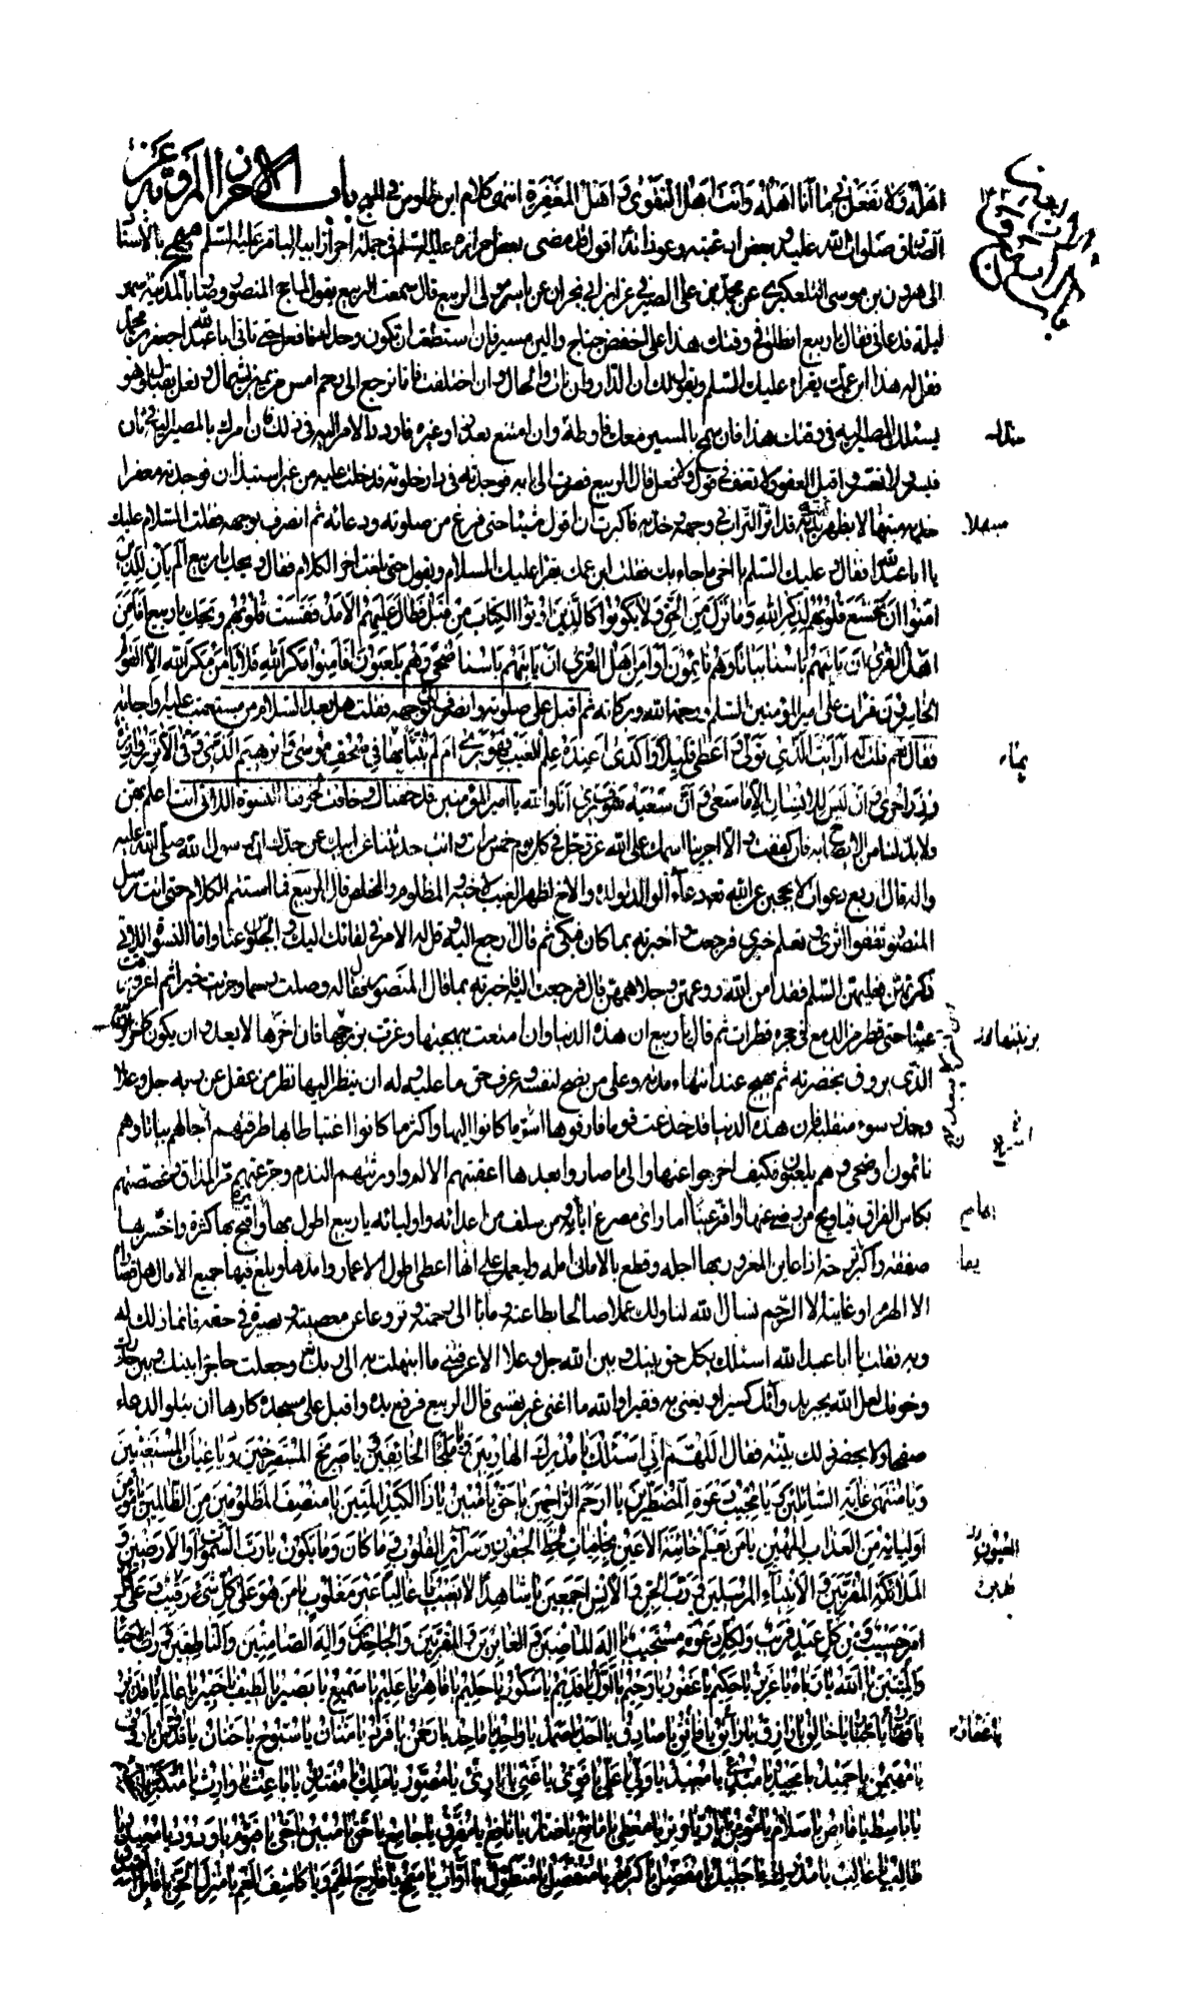 اهله ولا تفعل بي ما أنا اهله وانت اهل التقوى واهل المغفرة انتهى كلام ابن طاوس في المهج باب الاحراز المروية عن
الصادق صلوات الله عليه وبعض ادعيته وعوذاته اقول قد مضى بعض احرازه عليه السلم في جملة احراز ابيه الباقر عليه السلم مهج بالاسناد
الى هرون بن موسى التلعكبري عن محمد بن علي الصيرفي عن ابن ابي نجران عن ياسر مولى الربيع قال سمعت الربيع يقول لما حج المنصور وصار بالمدينة سهر
ليلة فدعاني فقال يا ربيع انطلق في وقتك هذا على اخفض جناح والين مسير فان استطعت ان تكون وحدك فافعل حتى تاتي ابا عبد الله جعفر بن محمد
فقل له هذا ابن عمك يقرء عليك السلم ويقول لك ان الدار وان نات والحال وان اختلفت فانا نرجع الى رحم امس من يمين بشمال ونعل بقبال وهو
يسئلك المصير اليه في وقتك هذا فان سمح بالمسير معك فاوطه وان امتنع بعذر او غيره فاردد الامر اليه في ذلك فان امرك بالمصير اليه في تان
فيسر ولا تعسر واقبل العفو ولا تعنف في قول ولا فعل قال الربيع فصرت الى بابه فوجدته في دار خلوته فدخلت عليه من غير استيذان فوجدته معفرا
خديه مبتهلا بظهر يديه قد اثر التراب في وجهه وخديه فاكبرت ان اقول شيئا حتى فرغ من صلوته ودعائه ثم انصرف بوجهه فقلت السلام عليك
يا ابا عبد الله فقال وعليك السلم يا اخي ما جاء بك فقلت ابن عمك يقرأ عليك السلام ويقول حتى بلغت اخر الكلام فقال ويحك يا ربيع الم يان للذين
امنوا ان تخشع قلوبهم لذكر الله وما نزل من الحق ولا يكونوا كالذين اوتوا الكتاب من قبل فطال عليهم الامد فقست قلوبهم ويحك يا ربيع افامن
اهل القرى ان ياتيهم باسنا بياتا وهم نائمون او امن اهل القرى ان ياتيهم باسنا ضحى وهم يلعبون افامنوا مكر الله فلا يامن مكر الله الا القوم
الخاسرون قرات على امير المؤمنين السلم ورحمة الله وبركاته ثم اقبل على صلوته وانصرف الى توجهه فقلت هل بعد السلام من مستعتب عليه او اجابة
فقال نعم قل له افرايت الذي تولى واعطى قليلا واكدى اعنده علم الغيب فهو يرى ام لم ينبأ بما في صحف موسى وابرهيم الذي وفى الا تزر وازرة
وزر اخرى وان ليس للانسان الا ما سعى وان سعيه سوف يرى انا والله يا امير المؤمنين قد خفناك وخافت لخوفنا النسوة اللاتي انت اعلم بهن
ولا بد لنا من الايضاح به فان كففت والا اجرينا اسمك على الله عز وجل في كل يوم خمس مرات وانت حدثتنا عن ابيك عن جدك ان رسول الله صلى الله عليه
واله قال اربع دعوات لا يحجبن عن الله تعالى دعاء الوالد لولده والاخ بظهر الغيب لاخيه والمظلوم والمخلص قال الربيع فما استتم الكلام حتى اتت رسل
المنصور تقفوا اثري وتعلم خبري فرجعت واخبرته بما كان فبكى ثم قال ارجع اليه وقل له الامر في لقائك اليك والجلوس عنا واما النسوة اللاتي
ذكرتهن فعليهن السلم فقد امن الله روعهن وجلا همهن قال فرجعت اليه فاخبرته بما قال المنصور فقال قل له وصلت رحما وجزيت خيرا ثم اغرورقت
عيناه حتى قطر من الدمع في حجره قطرات ثم قال يا ربيع ان هذه الدنيا وان امتعت ببهجتها وغرت بزبرجها فان اخرها لا يعدو ان يكون كاخر الربيع
الذي يروق بخضرته ثم يهيج عند انتهاء مدته وعلى من نصح لنفسه وعرف حق ما عليه وله ان ينظر اليها نظر من عقل عن ربه جل وعلا
وحذر سوء منقلبه فان هذه الدنيا قد خدعت قوما فارقوها اسر ما كانوا اليها واكثر ما كانوا اغتباطا بها طرقتهم اجالهم بياتا وهم
نائمون او ضحى وهم يلعبون فكيف اخرجوا عنها والى ما صاروا بعدها اعقبتهم الالم واورثتهم الندم وجرعتهم مر المذاق وغصصتهم
بكاس الفراق فيا ويح من رضي عنها او اقر عينا بها اما راى مصرع ابائه ومن سلف من اعدائه واوليائه يا ربيع اطول بها حيرة واقبح بها كثرة واخسر بها
صفقة واكبر بها ترحة اذا عاين المغرور بها اجله وقطع بالاماني امله وليعمل على انها اعطي اطول الاعمار وامدها وبلغ فيها جميع الامال هل قصاراه
الا الهرم او غايته الا الوخم نسال الله لنا ولك عملا صالحا بطاعته ومابا الى رحمته ونزوعا عن معصيته وبصيرة في حقه فانما ذلك له
وبه فقلت يا ابا عبد الله اسئلك بكل حق بينك وبين الله جل وعلا الا عرفتني ما ابتهلت به الى ربك وجعلته حاجزا بينك وبين حذرك
وخوفك لعل الله يجبر بدوائك كسيرا ويغني به فقيرا والله ما اعني غير نفسي قال الربيع فرفع يده واقبل على مسجده كارها ان يتلو الدعاء
صفحا ولا يحضر ذلك بنية فقال اللهم اني اسئلك يا مدرك الهاربين ويا ملجأ الخائفين ويا صريخ المستصرخين ويا غياث المستغيثين
ويا منتهى غاية السائلين ويا مجيب دعوة المضطرين يا ارحم الراحمين يا حق يا مبين يا ذا الكيد المتين يا منصف المظلومين من الظالمين يا مؤمن
اوليائه من العذاب المهين يا من يعلم خائنة الاعين بخافيات لحظ الجفون وسرائر القلوب وما كان وما يكون يا رب السموات والارضين و
الملائكة المقربين والانبياء المرسلين ورب الجن والانس اجمعين يا شاهدا لا يغيب يا غالبا غير مغلوب يا من هو على كل شئ رقيب وعلى كل
امر حسيب ومن كل عبد قريب ولكل دعوة مستجيب يا اله الماضين والغابرين والمقرين والجاحدين واله الصامتين والناطقين ورب الاحياء
والميتين يا الله يا رباه يا عزيز يا حكيم يا غفور يا رحيم يا اول يا قديم يا شكور يا حليم يا قاهر يا عليم يا سميع يا بصير يا لطيف يا خبير يا عالم يا قدير
يا قهار يا غفار يا جبار يا خالق يا رازق يا راتق يا فاتق يا صادق يا احد يا صمد يا واحد يا ماجد يا رحمن يا فرد يا منان يا سبوح يا حنان يا قدوس يا رؤف
يا مهيمن يا حميد يا مجيد يا مبدئ يا معيد يا ولي يا علي يا قوي يا غني يا بارئ يا مصور يا ملك يا مقتدر يا باعث يا وارث يا متكبر يا عظيم
يا باسط يا قابض يا سلام يا مؤمن يا بار يا وتر يا معطي يا مانع يا ضار يا نافع يا مفرق يا جامع يا حق يا مبين يا حي يا قيوم يا ودود يا معيد يا
طالب يا غالب يا مدرك يا جليل يا مفضل يا كريم يا متفضل يا متطول يا اواب يا سمح يا فارج الهم ويا كاشف الغم يا منزل الحق يا قابل الصدق